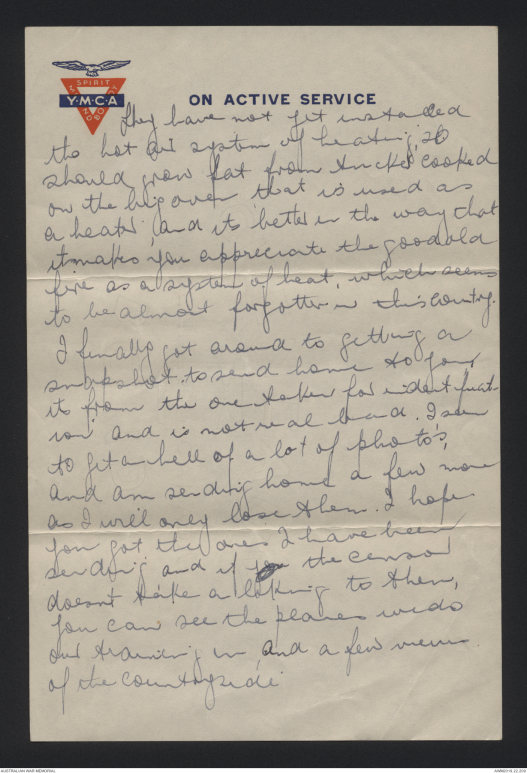 SPIRIT
Y·M·C·A
BODY
ON ACTIVE SERVICE
They have not yet installed
the hot air system of heating, so
should grow fat from tucker cooked
on the big oven that is used as
a heater, and its better in the way that
it makes you appreciate the good old
fire as a system of heat, which seems
to be almost forgotten in this country.
I finally got around to getting a
snapshot to send home to you,
its from the one taken for identificat-
ion and is not real bad. I seem
to get a hell of a lot of photo's,
and am sending home a few more
as I will only lose them. I hope
you got the ones I have been
sending and if the censor
doesnt take a liking to them,
you can see the planes we do
our training in, and a few views
of the countryside.
AUSTRALIAN WAR MEMORIAL